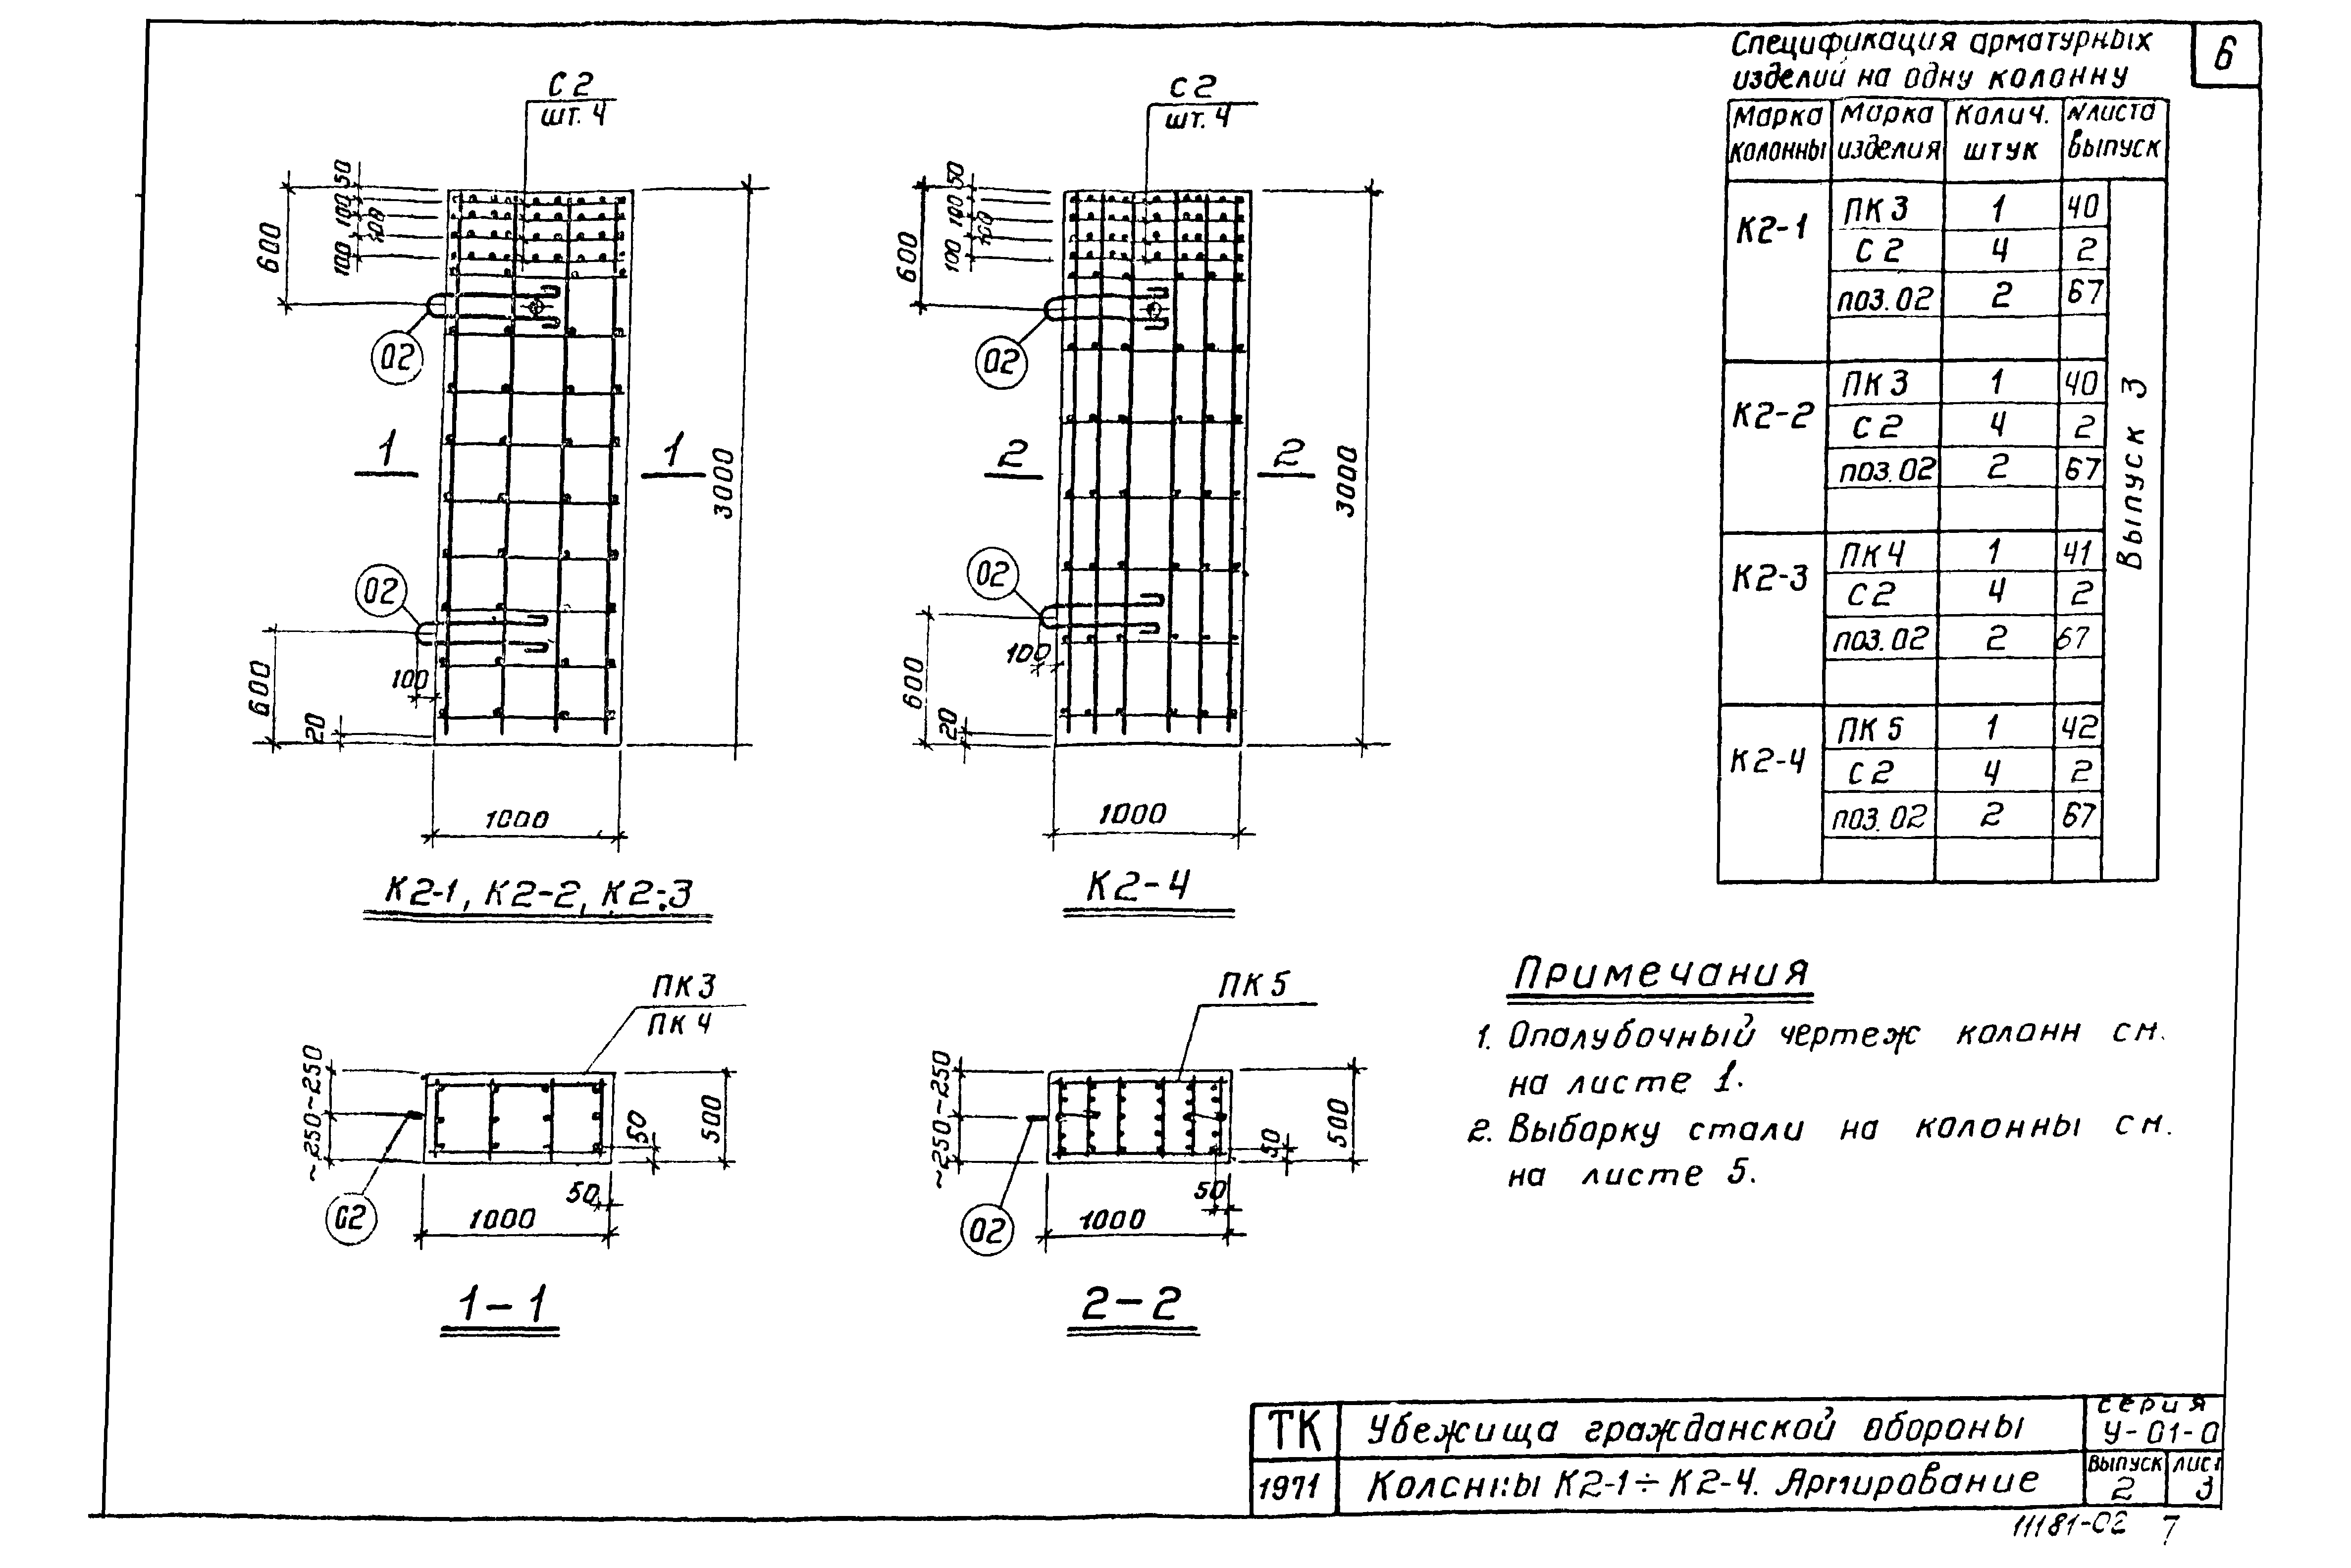 6
Спецификация арматурных
изделий на одну колонну
Марка колонны Марка изделия Колич. штук №листа выпуск
К2-1 ПК3 1 40
С2 4 2
поз.02 2 67
К2-2 ПК3 1 40
С2 4 2
поз.02 2 67
К2-3 ПК4 1 41
С2 4 2
поз.02 2 67
К2-4 ПК5 1 42
С2 4 2
поз.02 2 67
Выпуск 3
С2
шт. 4
50
100
100
600
02
1 1
3000
02
600
100
20
1000
К2-1, К2-2, К2-3
С2
шт. 4
50
100
100
600
02
2 2
3000
02
600
100
20
1000
К2-4
ПК3
ПК4
~250
~250
02
50
500
50
1000
1-1
ПК5
~250
~250
02
50
500
50
1000
2-2
Примечания
1. Опалубочный чертеж колонн см.
на листе 1.
2. Выборку стали на колонны см.
на листе 5.
ТК Убежища гражданской обороны серия У-01-0
1971 Колонны К2-1÷К2-4. Армирование выпуск 2 лист 3
11181-02 7